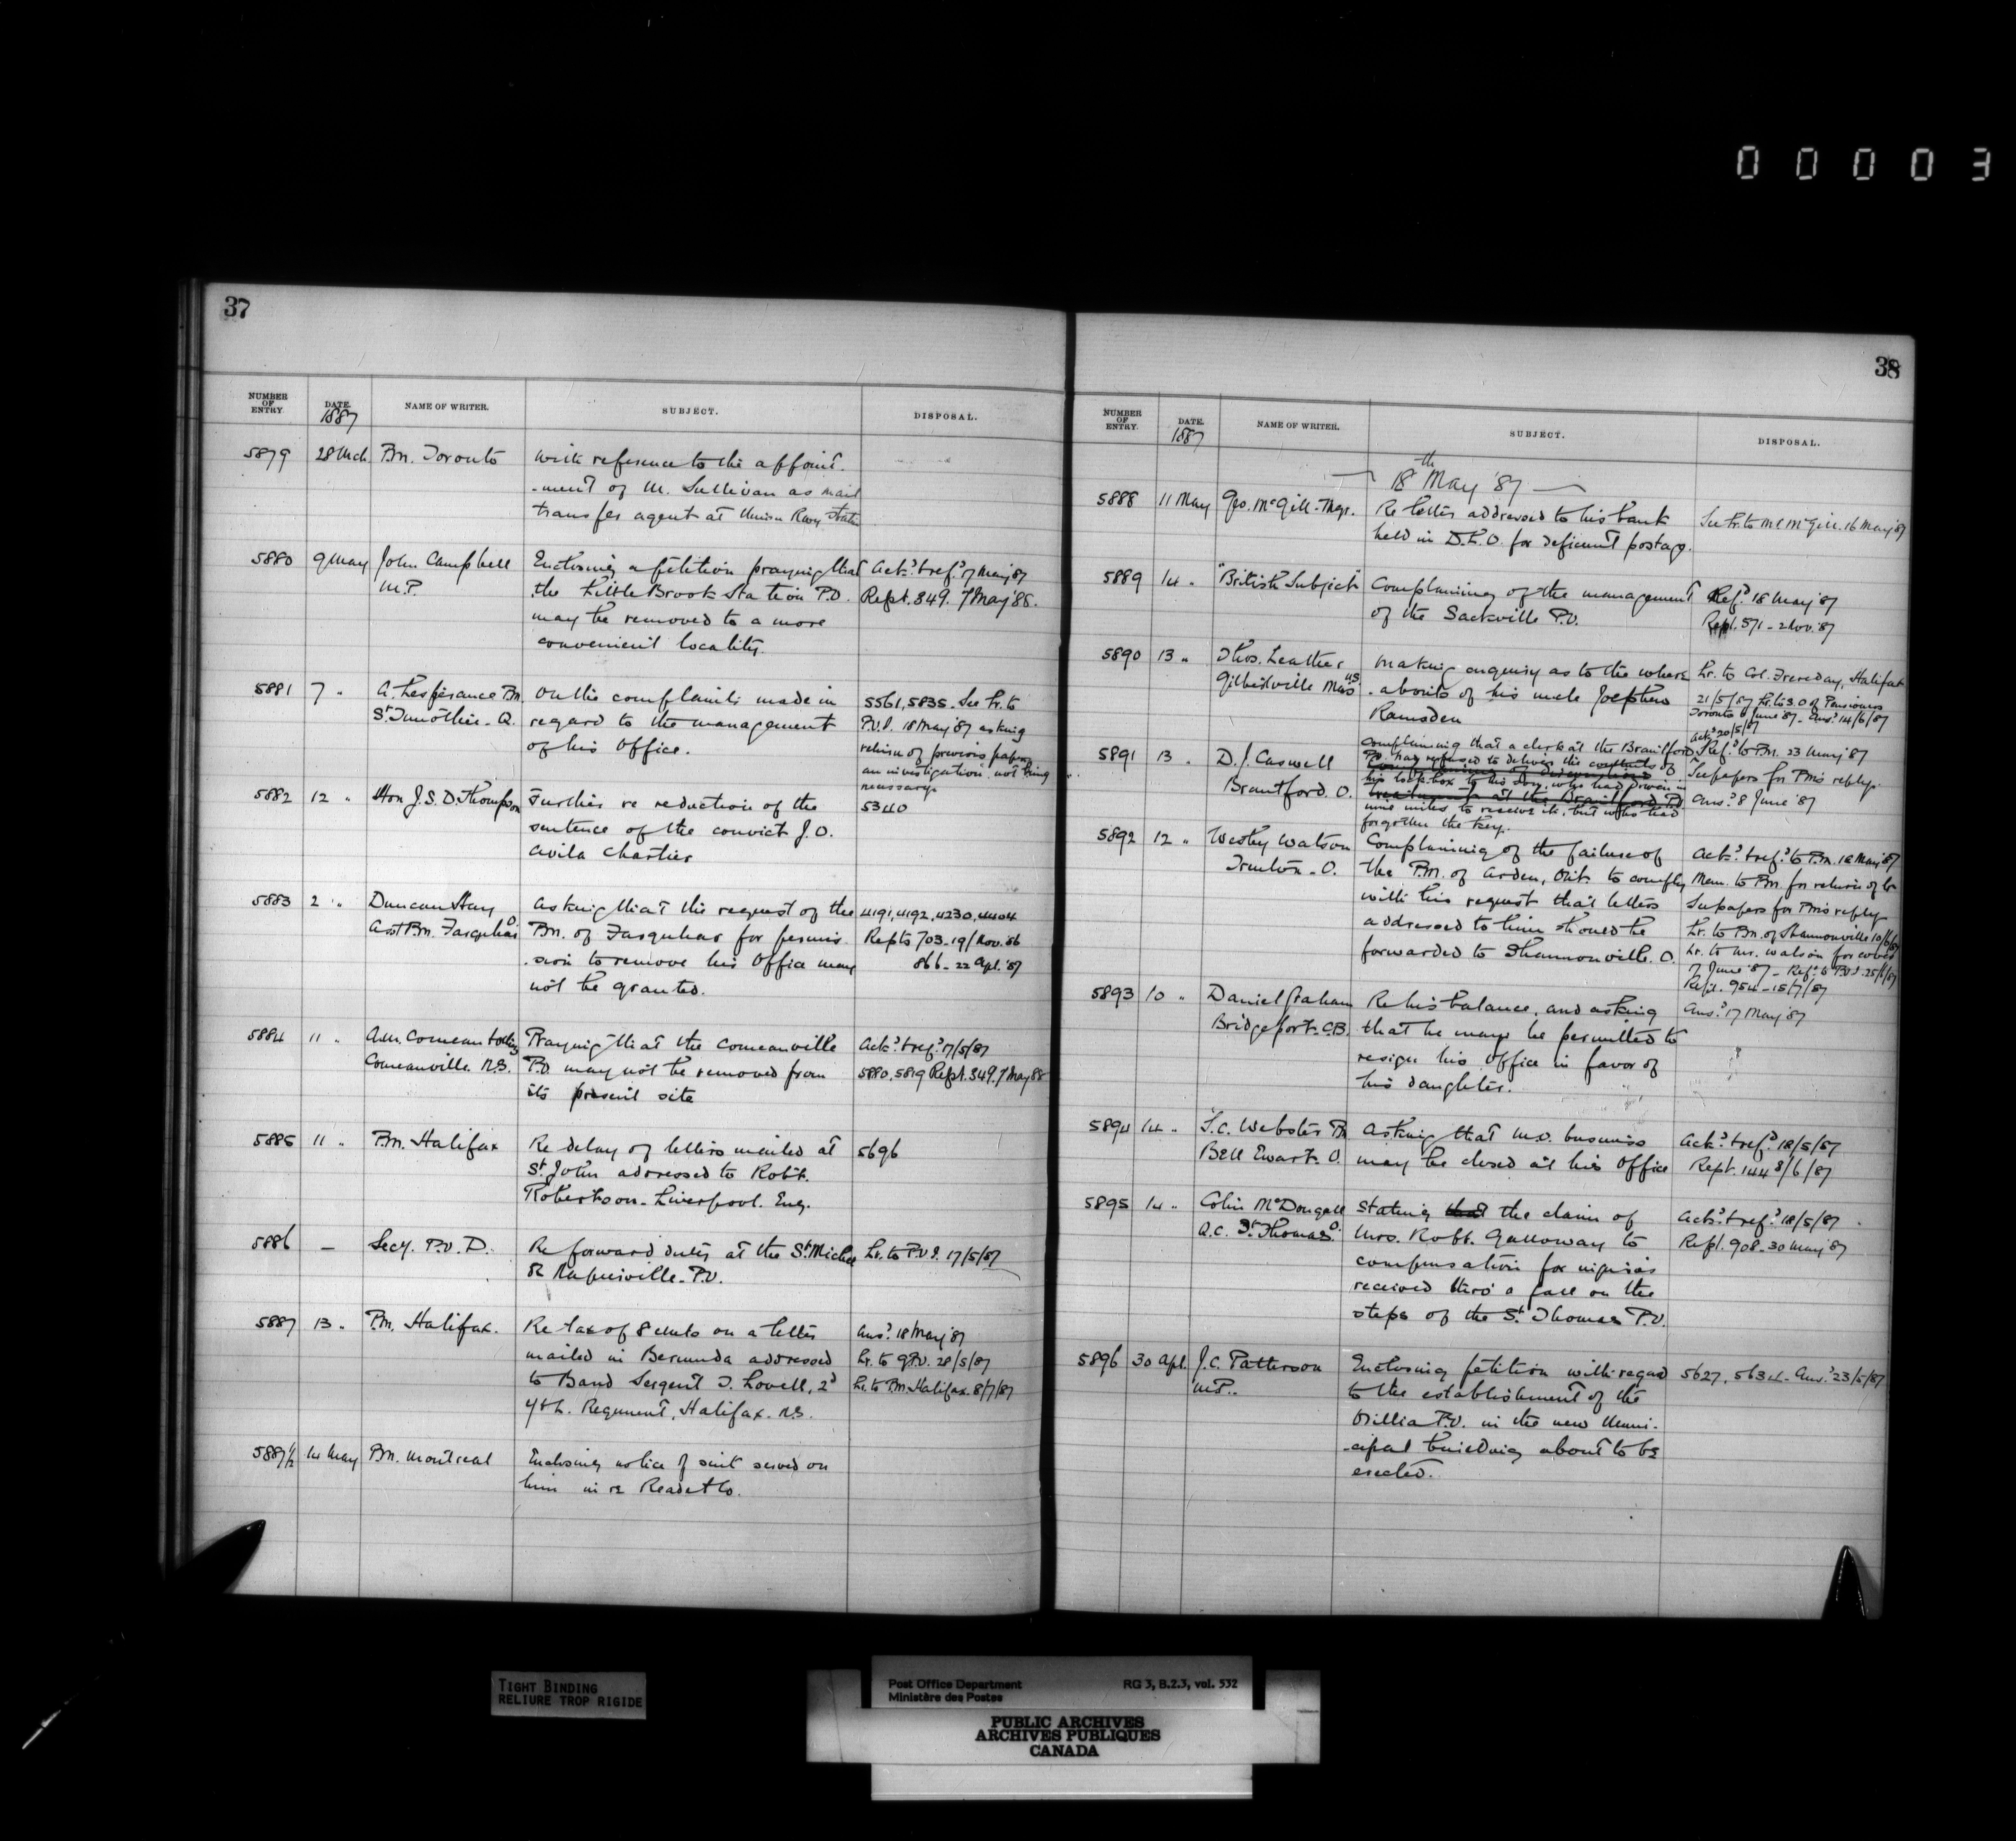 00003
37
NUMBER OF ENTRY.
DATE.
1887
NAME OF WRITER.
SUBJECT.
DISPOSAL.
5879 28 Mch Pm. Toronto
With reference to the appoint-
-ment of M. Sullivan as mail
transfer agent at Union Rwy Statn
5880 9 May John Campbell
M.P.
Enclosing a petition praying that
the Little Brook Station P.O.
may be removed to a more
convenient locality.
Ack.d & ref.d 17 May '87
Rept. 349. 7 May '88.
5881 7 " A. Lesperance Pm.
St Timothée - Q.
On the complaints made in
regard to the management
of his office.
5561, 5835. See Lr. to
P.O.I. 18 May '87 asking
return of previous papers
an investigation not being
necessary.
5882 12 " Hon J.S.D. Thompson
Further re reduction of the
sentence of the convict J.O.
Avila Chartier
5340
5883 2 " Duncan Hay
Asst Pm. Farquhar O.
Asking that the request of the
Pm. of Farquhar for permis-
-sion to remove his office may
not be granted.
4191, 4192, 4230, 4404
Repts 703 - 19/Nov. '86
866 - 22 Apl. '87
5884 11 " Comeau
Comeauville. N.S.
Praying that the Comeauville
P.O. may not be removed from
its present site
Ack.d & ref.d 17/5/87
5880, 5819 Rept. 349. 7 May 88
5885 11 " P.m. Halifax
Re delay of letters mailed at
St. John addressed to Robt.
Robertson - Liverpool. Eng.
5696
5886 — Secy. P.O.D.
Re forward duty at the St Michel
P.O.
Lr. to P.O.I. 17/5/87
5887 13 " P.m. Halifax.
Re tax of 8 cents on a letter
mailed in Bermuda addressed
to Band Sergent J. Lovell, 2d
Y & L. Regiment, Halifax. N.S.
Ans.d 18 May '87
Lr. to G.P.O. 28/5/87
Lr. to Pm. Halifax 8/7/87
5887½ 14 May Pm. Montreal
Enclosing notice of suit served on
him in re Read & Co.
38
NUMBER OF ENTRY.
DATE.
1887
NAME OF WRITER.
SUBJECT.
DISPOSAL.
18th May '87
5888 11 May Geo. McGill - Mgr.
Re letter addressed to his bank
held in D.L.O. for deficient postage.
See Lr. to Mr McGill. 16 May '87
5889 14 " "British Subject"
Complaining of the management
of the Sackville P.O.
Ref.d 18 May '87
Rept. 571 - 2 Nov. '87
5890 13 " Thos. Leather
Gilbertville Mass U.S.
Making enquiry as to the where-
-abouts of his uncle Josephus
Ramsden
Lr. to Col. Halifax
21/5/87 Lr. to S.O. of Pensioners
Toronto 6 June '87 - Ans.d 14/6/87
5891 13 " D.J. Caswell
Brantford. O.
Complaining that a clerk at the Brantford
P.O. had refused to deliver the contents of
his lock box to his son, who had driven in
nine miles to receive it, but who had
forgotten the key.
Ack.d 20/5/87
Ref.d to Pm. 23 May '87
See papers for Pm's reply.
Ans.d 8 June '87
5892 12 " Westley Watson
Trenton - O.
Complaining of the failure of
the P.M. of Arden, Ont. to comply
with his request that letters
addressed to him should be
forwarded to Shannonville. O.
Ack.d & ref.d to P.m. 18 May '87
Mem. to Pm. for return of Lr.
See papers for Pm's reply
Lr. to Pm. of Shannonville 10/6/87
Lr. to Mr. Watson for cover
17 June '87 - Ref.d to P.O.I. 25/6/87
Rept. 954 - 15/7/87
5893 10 " Daniel Graham
Bridgeport. C.B.
Re his balance, and asking
that he may be permitted to
resign his office in favor of
his daughter.
Ans.d 17 May '87
5894 14 " Webster Pm
Bell Ewart. O.
Asking that M.O. business
may be closed at his office
Ack.d & ref.d 18/5/87
Rept. 144 8/6/87
5895 14 " Colin McDougall
Q.C. St. Thomas. O.
Stating that the claim of
Mrs. Robt. Galloway to
compensation for injuries
received thro' a fall on the
steps of the St. Thomas P.O.
Ack.d & ref.d 18/5/87
Rept. 908 - 30 May '87
5896 30 Apl. J.C. Patterson
M.P.
Enclosing petition with regard
to the establishment of the
Orillia P.O. in the new Muni-
-cipal building about to be
erected.
5627, 5634 - Ans.d 23/5/87
TIGHT BINDING
RELIURE TROP RIGIDE
Post Office Department
Ministère des Postes
RG 3, B.2.3, vol. 532
PUBLIC ARCHIVES
ARCHIVES PUBLIQUES
CANADA